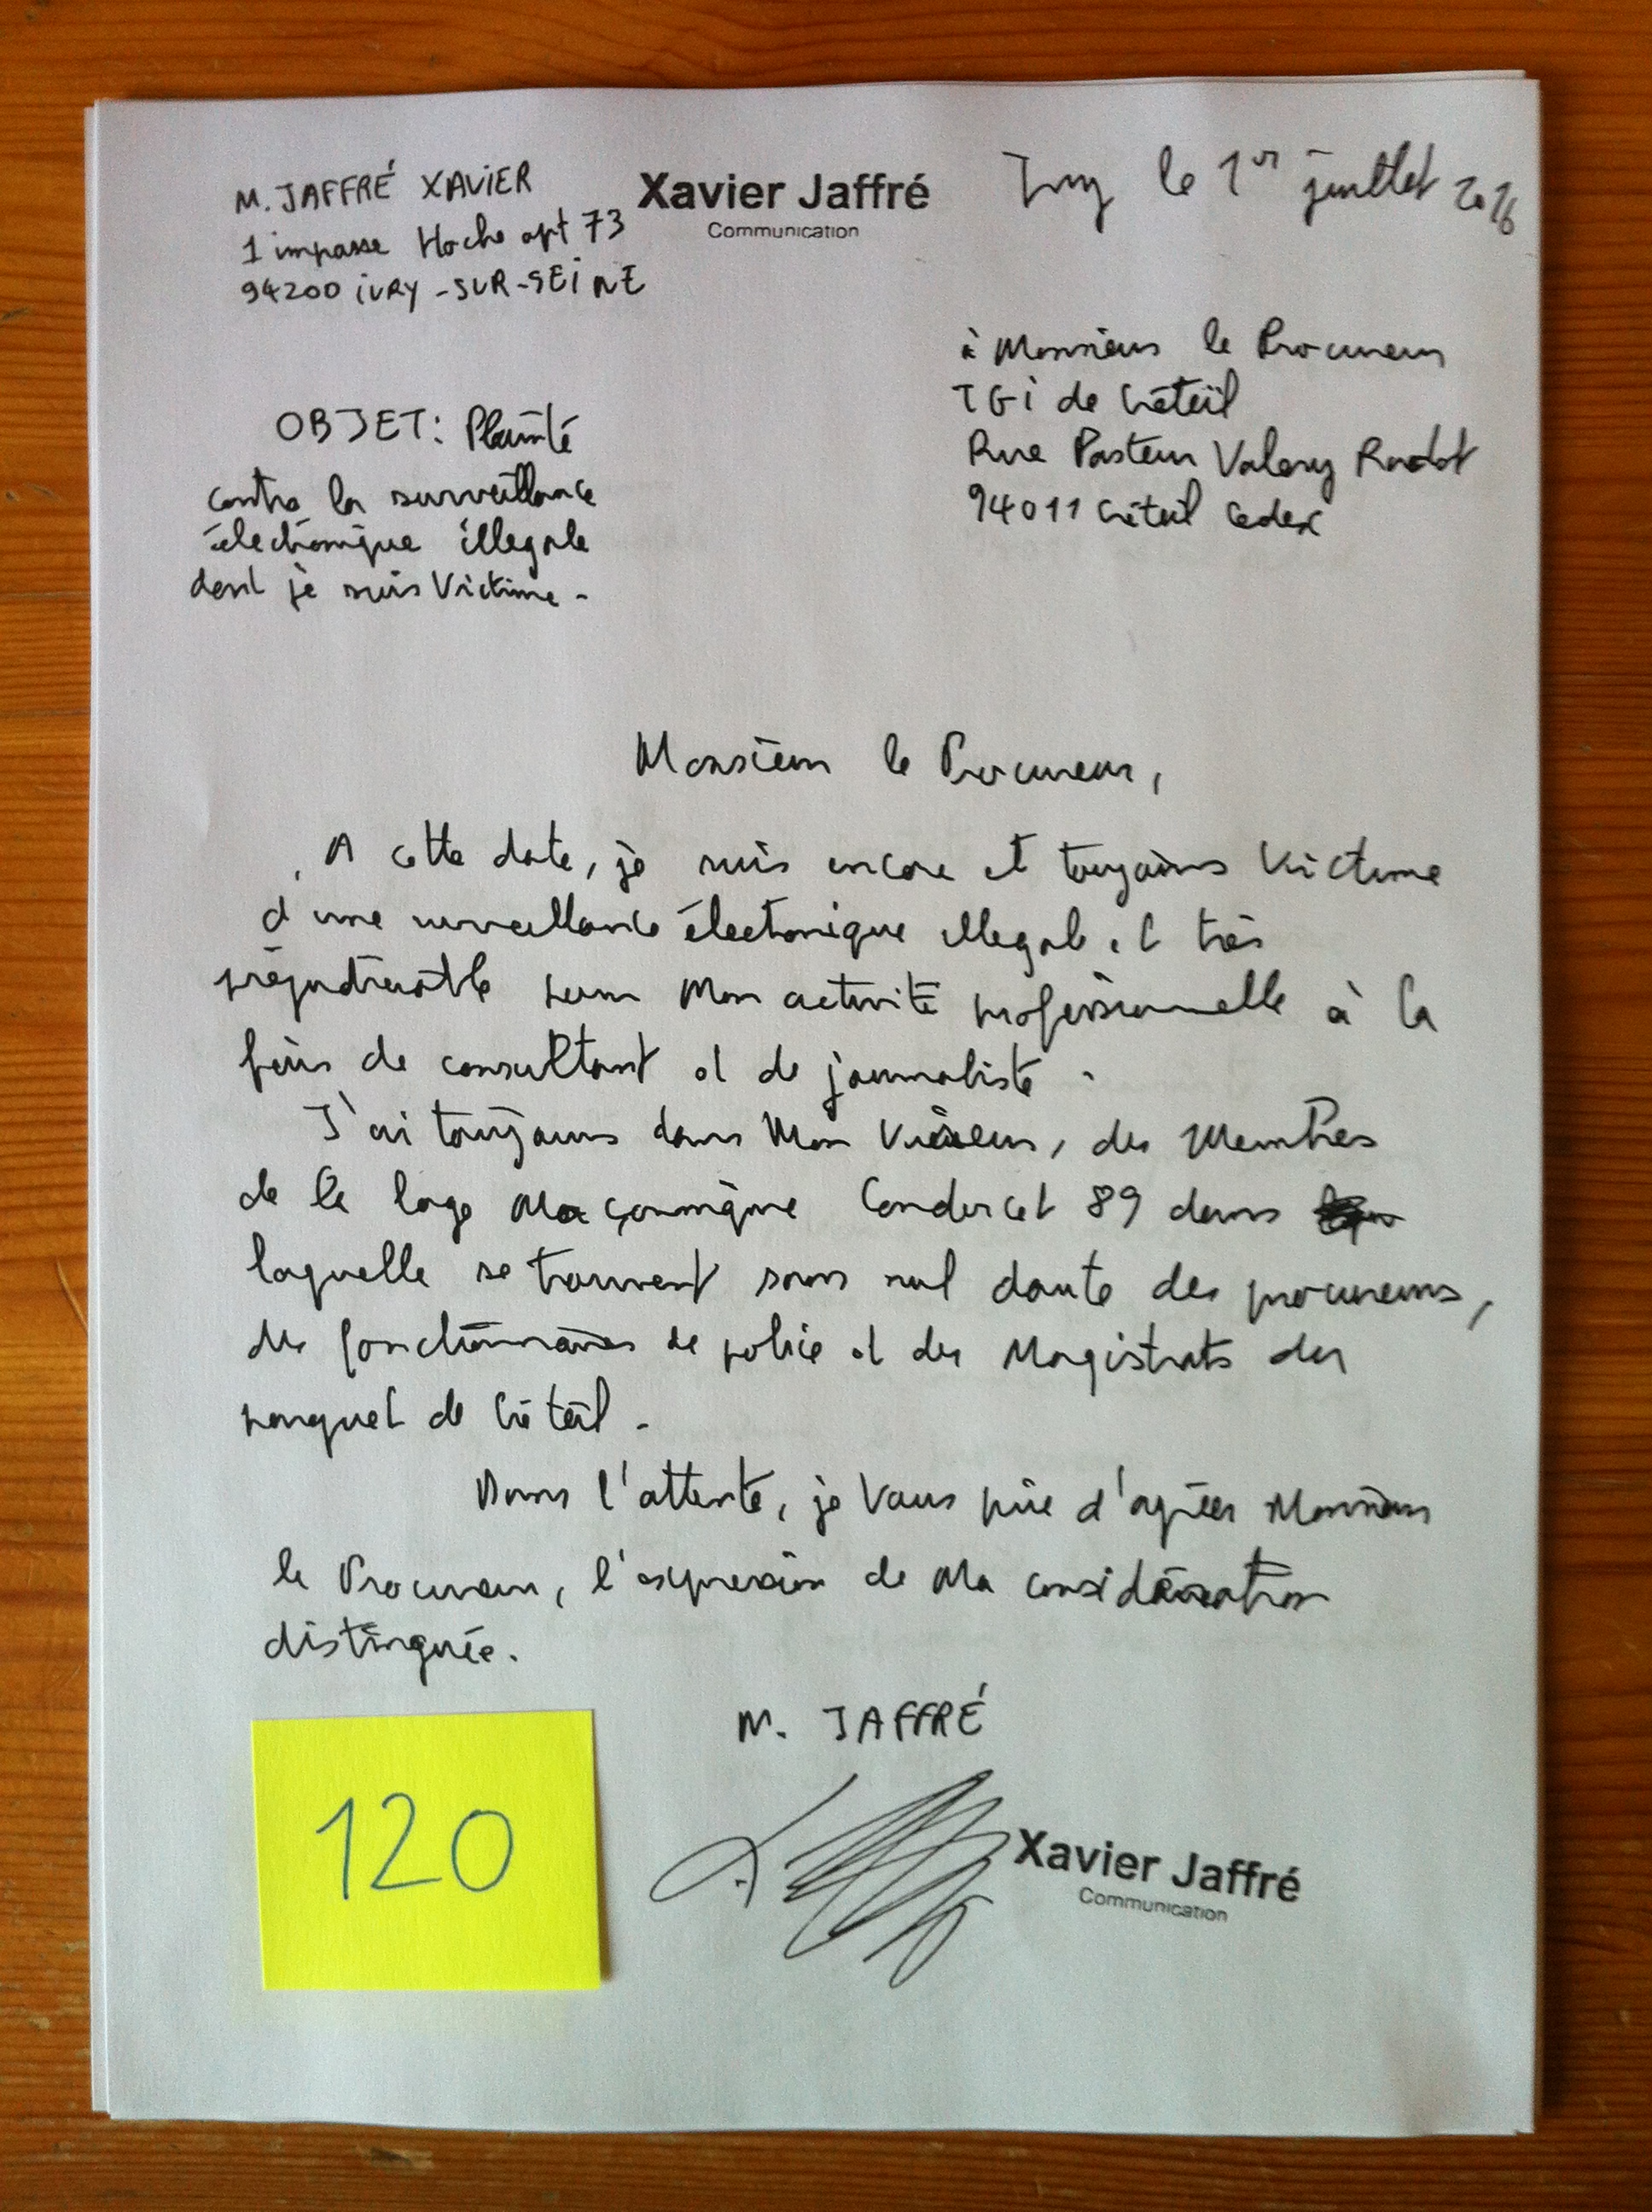 M. JAFFRÉ XAVIER
1 impasse Hoche apt 73
94200 IVRY-SUR-SEINE
Xavier Jaffré
Communication
Ivry le 1er juillet 2016
à Monsieur le Procureur
TGI de Créteil
Rue Pasteur Valery Radot
94011 Créteil Cedex
OBJET: Plainte
contre la surveillance
électronique illegale
dont je suis Victime -
Monsieur le Procureur,
A cette date, je suis encore et toujours Victime
d'une surveillance électronique illegale et très
préjudiciable pour Mon activité professionnelle à la
fois de consultant et de journaliste.
J'ai toujours dans Mon viseur, des Membres
de la loge Maçonnique Condorcet 89 dans
laquelle se trouvent sans nul doute des procureurs,
des fonctionnaires de police et des Magistrats du
parquet de Créteil -
Dans l'attente, je Vous prie d'agréer Monsieur
le Procureur, l'expression de Ma considération
distinguée.
M. JAFFRÉ
Xavier Jaffré
Communication
120